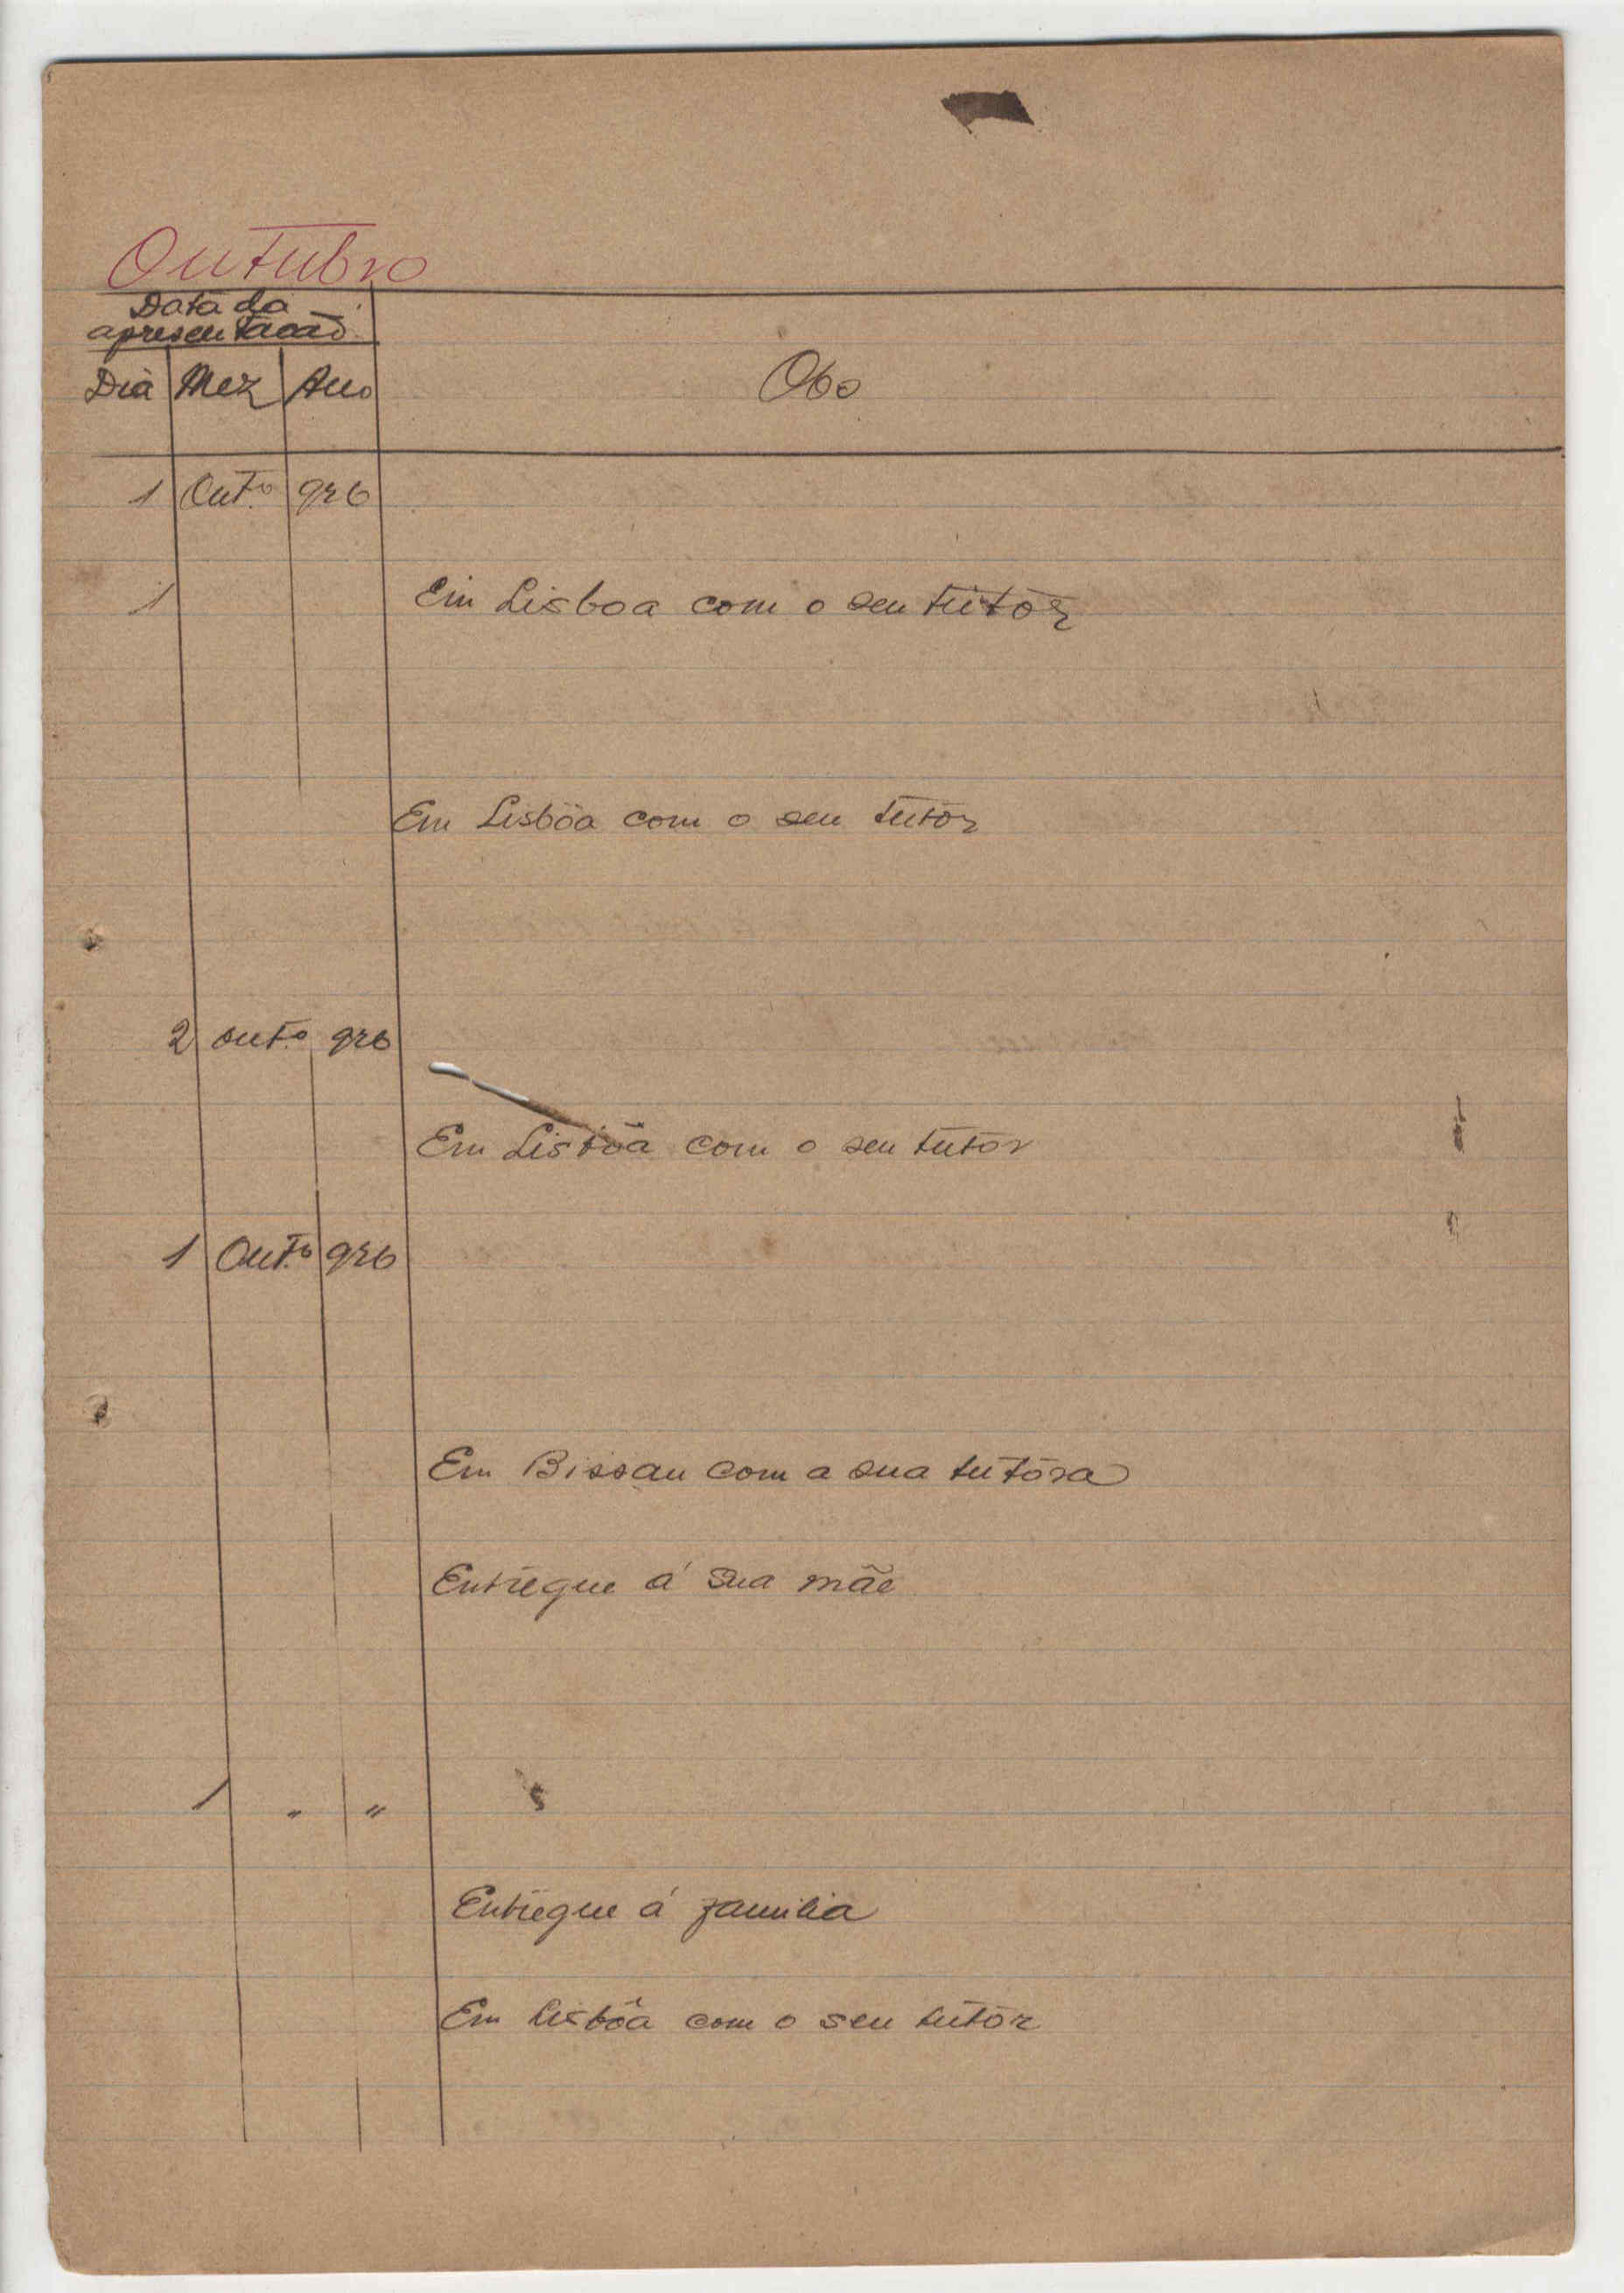 Outubro
Data da
apresentação
Dia Mez Ano
Obs
1 Out.º 926
1
Em Lisboa com o seu tutôr
Em Lisbôa com o seu tutôr
2 out.º 926
Em Lisbôa com o seu tutor
1 Out.º 926
Em Bissau com a sua tutôra
Entregue á sua mãe
1 " "
Entregue á familia
Em Lisbôa com o seu tutôr